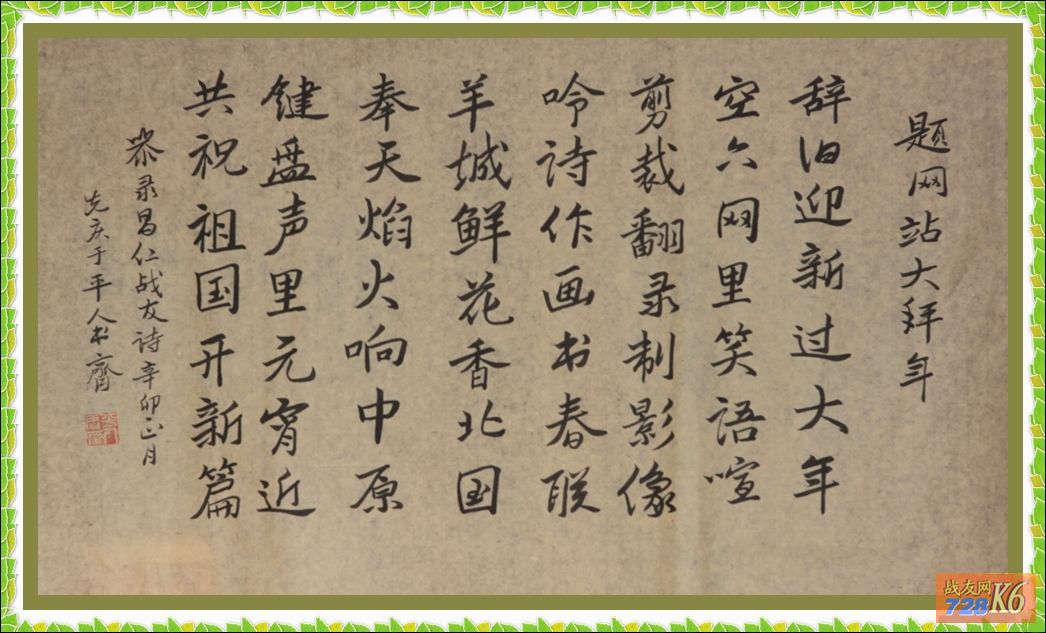 题网站大拜年
辞旧迎新过大年
空六网里笑语喧
剪裁翻录制影像
吟诗作画书春联
羊城鲜花香北国
奉天焰火响中原
键盘声里元宵近
共祝祖国开新篇
恭录昌仁战友诗辛卯正月
先庆于平人书斋
战友网
728K6